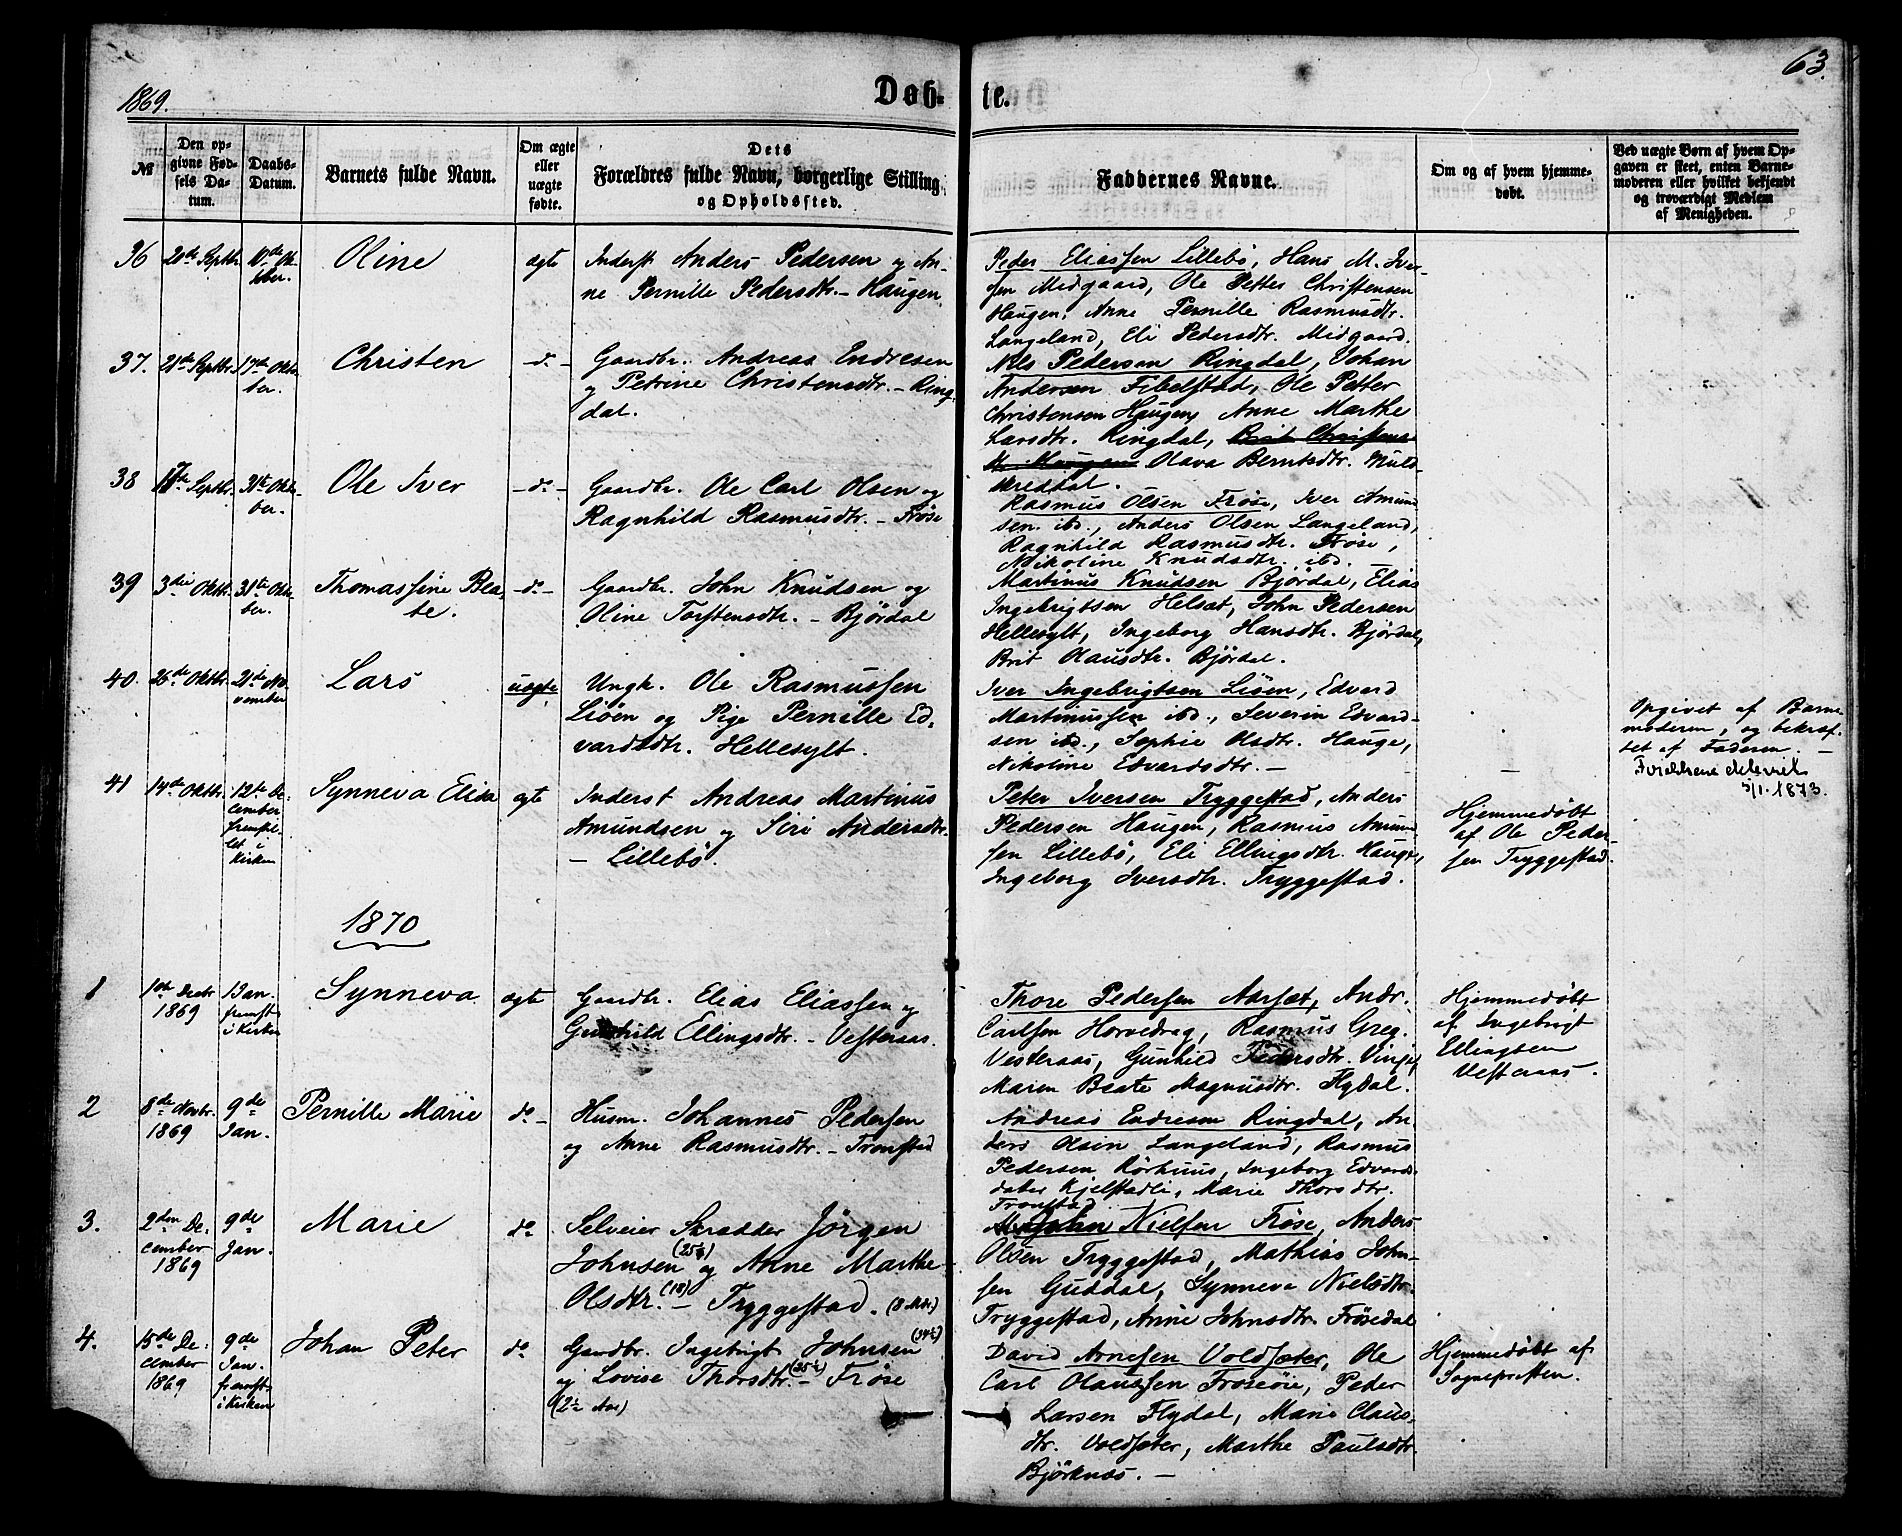 1869.
Døb-
te.
63.
№
Den op-
givne Fød-
sels Da-
tum.
Daabs-
Datum.
Barnets fulde Navn.
Om ægte
eller
uægte
fødte.
Dets
Forældres fulde Navn, borgerlige Stilling
og Opholdssted.
Faddernes Navne.
Om og af hvem hjemme-
døbt.
Ved uægte Børn af hvem Op-
gaven er skeet, enten Barne-
moderen eller hvilket bekjendt
og troværdigt Medlem
af Menigheden.
36
20de Septbr.
10de Ok-
tober.
Oline
ægte
Inderst Anders Pedersen og An-
ne Pernille Pedersdtr. - Haugen
Peder Eliassen Lillebø, Hans M. Iver-
sen Midgaard, Ole Petter Christensen
Haugen, Anne Pernille Rasmusdtr.
Langeland, Eli Pedersdtr. Midgaard.
37.
21de Septbr.
17de Okto-
ber.
Christen
-do-
Gaardbr. Andreas Endresen
og Petrine Christensdtr. - Ring-
dal.
Nils Pedersen Ringdal, Johan
Andersen Fibelstad, Ole Petter
Christensen Haugen, Anne Marthe
Larsdtr. Ringdal, Brit Christens-
dtr. Haugen Olava Berntsdtr. Muld-
skreddal.
38
Septbr.
31te Okto-
ber.
Ole Iver
-do-
Gaardbr. Ole Carl Olsen og
Ragnhild Rasmusdtr. - Frøse
Rasmus Olsen Frøse, Iver Amund-
sen ibd., Anders Olsen Langeland,
Ragnhild Rasmusdtr. Frøse,
Nikoline Knudsdtr. ibd. -
39
3die Oktbr.
31te Okto-
ber.
Thomassine Bea-
te.
-do-
Gaardbr. John Knudsen og
Oline Torstensdtr. - Bjørdal
Martinus Knudsen Bjørdal, Elias
Ingebrigtsen Helset, John Pedersen
Hellesylt, Ingeborg Hansdtr. Bjørdal,
Brit Olausdtr. Bjørdal.
40.
26de Oktbr.
21de No-
vember
Lars
uægte
Ungk. Ole Rasmussen
Liøen og Pige Pernille Ed-
vardsdtr. Hellesylt.
Iver Ingebrigtsen Liøen, Edvard
Martinussen ibd., Severin Edvard-
sen ibd., Sophie Olsdtr. Hauge,
Nikoline Edvardsdtr. -
-
Opgivet af Barne-
moderen, og bekræf-
tet af Faderen. -
3/1. 1873.
41
14de Oktbr.
12te De-
cember
fremstil-
let i
Kirken
Synneva Elisa
ægte
Inderst Andreas Martinus
Amundsen og Siri Andersdtr.
- Lillebø.
Peter Iversen Tryggestad, Anders
Pedersen Haugen, Rasmus Amund-
sen Lillebø, Eli Ellingsdtr. Hauge,
Ingeborg Iversdtr. Tryggestad.
Hjemmedøbt
af Ole Peder-
sen Tryggestad.
1870
1
1ste Decbr
1869
1 Jan.
fremst.
i Kirken
Synneva
ægte
Gaardbr. Elias Eliassen og
Gunhild Ellingsdtr. - Vesteraas.
Thore Pedersen Aarset, Andr.
Carlsen Horvedrag, Rasmus Greg.
Vesteraas, Gunhild Pedersdtr. Vinje,
Maren Beate Magnusdtr. Flydal.
Hjemmedøbt
af Ingebrigt
Ellingsen
Vesteraas.
2
8de Novbr.
1869
9de
Jan.
Pernille Marie
do -
Husm. Johannes Pedersen
og Anne Rasmusdtr. - Tronstad
Andreas Endresen Ringdal, An-
ders Olsen Langeland, Rasmus
Pedersen Rørhuus, Ingeborg Edvards-
datter Kjelstadli, Marie Thorsdtr.
Tronstad.
3.
2den De-
cember
1869
9de
Jan.
Marie
do
Selveier Skrædder Jørgen
Johnsen (25½) og Anne Marthe
Olsdtr. (18) - Tryggestad. (8 Mdr.)
John Nielsen Frøse, Anders
Olsen Tryggestad, Mathias John-
sen Guddal, Synneva Nielsdtr.
Tryggestad, Anne Johnsdtr. Frøsedal
4.
15de De-
cember
1869
9de
Jan.
fremst.
i Kirken
Johan Peter
do
Gaardbr. Ingebrigt Johnsen (34½)
og Lovise Thorsdtr. (35½) - Frøse
(2½ Aar)
David Arnesen Voldsæter, Ole
Carl Olaussen Frøseøie, Peder
Larsen Flydal, Marie Claus-
dtr. Voldsæter, Marthe Paulsdtr.
Bjørknæs. -
Hjemmedøbt af
Sognepresten.